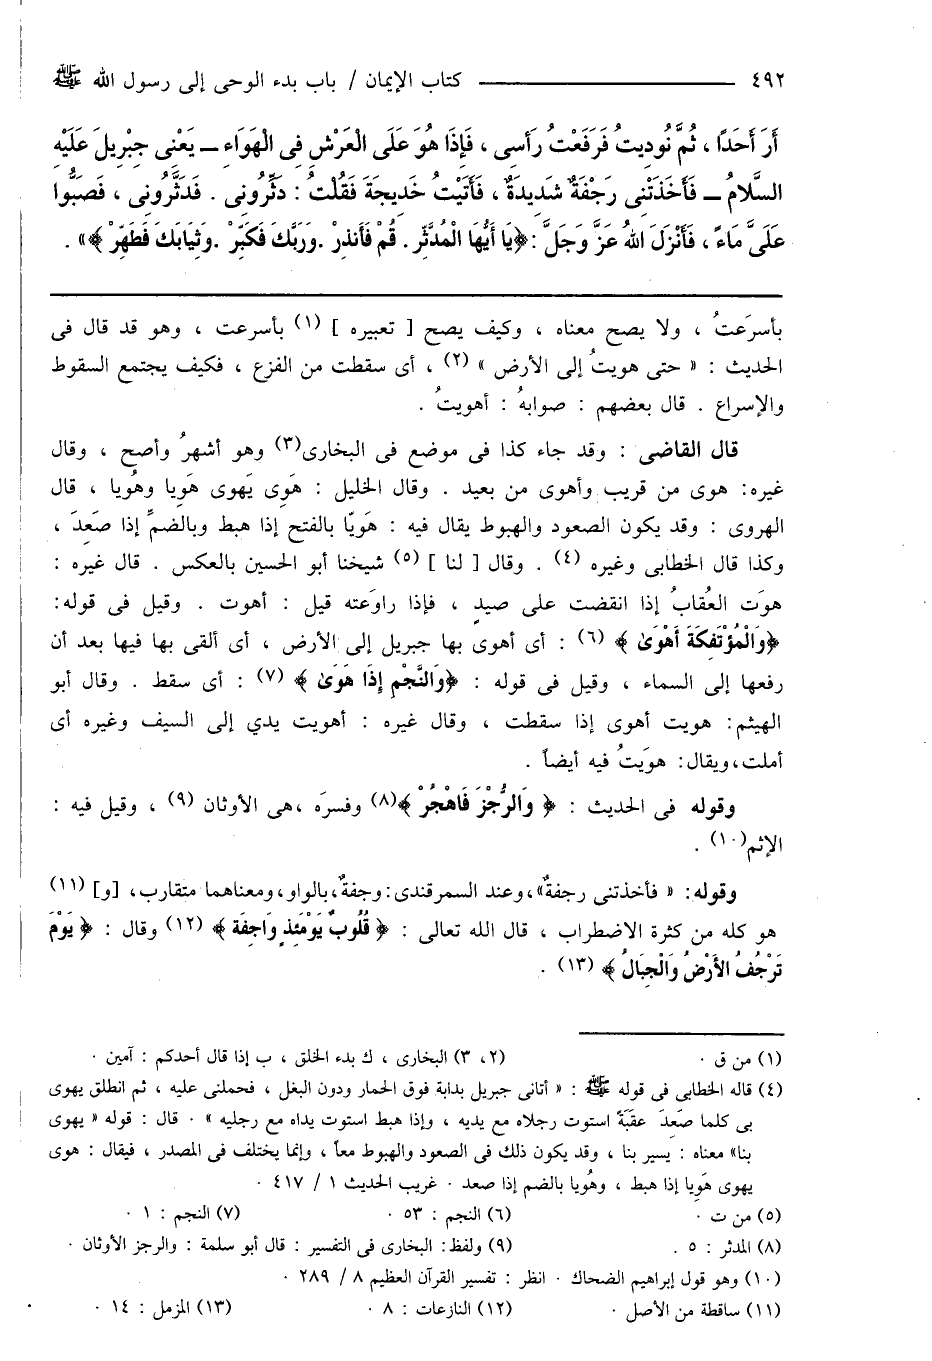 ٤٩٢ ـــــــــــــــــــ كتاب الإيمان / باب بدء الوحى إلى رسول الله ﷺ
أَرَ أَحَدًا ، ثُمَّ نُودِيتُ فَرَفَعْتُ رَأْسِى ، فَإِذَا هُوَ عَلَى الْعَرْشِ فِى الْهَوَاءِ ــ يَعْنِى جِبْرِيلَ عَلَيْهِ
السَّلامُ ــ فَأَخَذَتْنِى رَجْفَةٌ شَدِيدَةٌ ، فَأَتَيْتُ خَدِيجَةَ فَقُلْتُ : دَثِّرُونِى . فَدَثَّرُونِى ، فَصَبُّوا
عَلَىَّ مَاءً ، فَأَنْزَلَ اللهُ عَزَّ وَجَلَّ : ﴿يَا أَيُّهَا الْمُدَّثِّر . قُمْ فَأَنذِرْ .وَرَبَّكَ فَكَبِّرْ .وَثِيَابَكَ فَطَهِّرْ ﴾» .
بأسرَعتُ ، ولا يصح معناه ، وكيف يصح [ تعبيره ] (١) بأسرعت ، وهو قد قال فى
الحديث : « حتى هويتُ إلى الأرض » (٢) ، أى سقطت من الفزع ، فكيف يجتمع السقوط
والإسراع . قال بعضهم : صوابهُ : أهويتُ .
قال القاضى : وقد جاء كذا فى موضع فى البخارى(٣) وهو أشهرُ وأصح ، وقال
غيره: هوى من قريب وأهوى من بعيد . وقال الخليل : هَوَى يَهوى هَويا وهُويا ، قال
الهروى : وقد يكون الصعود والهبوط يقال فيه : هَوَيًا بالفتح إذا هبط وبالضمِّ إذا صَعِدَ ،
وكذا قال الخطابى وغيره (٤) . وقال [ لنا ] (٥) شيخنا أبو الحسين بالعكس . قال غيره :
هوَت العُقابُ إذا انقضت على صيدٍ ، فإذا راوَغته قيل : أهوت . وقيل فى قوله:
﴿وَالْمُؤْتَفِكَةَ أَهْوَىٰ ﴾ (٦) : أى أهوى بها جبريل إلى الأرض ، أى ألقى بها فيها بعد أن
رفعها إلى السماء ، وقيل فى قوله : ﴿وَالنَّجْمِ إِذَا هَوَىٰ ﴾ (٧) : أى سقط . وقال أبو
الهيثم: هويت أهوى إذا سقطت ، وقال غيره : أهويت يدي إلى السيف وغيره أى
أملت،ويقال: هوَيتُ فيه أيضاً .
وقوله فى الحديث : ﴿ وَالرُّجْزَ فَاهْجُرْ ﴾(٨) وفسرَه ،هى الأوثان (٩) ، وقيل فيه :
الإثم(١٠) .
وقوله: « فأخذتنى رجفةٌ»،وعند السمرقندى:وجفةٌ،بالواو،ومعناهما متقارب، [و] (١١)
هو كله من كثرة الاضطراب ، قال الله تعالى : ﴿ قُلُوبٌ يَوْمَئِذٍ وَاجِفَة ﴾ (١٢) وقال : ﴿ يَوْمَ
تَرْجُفُ الأَرْضُ وَالْجِبَالُ ﴾ (١٣) .
(١) من ق . (٢، ٣) البخارى ، ك بدء الخلق ، ب إذا قال أحدكم : آمين .
(٤) قاله الخطابى فى قوله ﷺ : « أتانى جبريل بدابة فوق الحمار ودون البغل ، فحملنى عليه ، ثم انطلق يهوى
بى كلما صَعِدَ عقَبَةً استوت رجلاه مع يديه ، وإذا هبط استوت يداه مع رجليه » . قال : قوله « يهوى
بنا» معناه : يسير بنا ، وقد يكون ذلك فى الصعود والهبوط معاً ، وإنما يختلف فى المصدر ، فيقال : هوى
يهوى هَويا إذا هبط ، وهُويا بالضم إذا صعد . غريب الحديث ١ / ٤١٧ .
(٥) من ت . (٦) النجم : ٥٣ . (٧) النجم : ١ .
(٨) المدثر : ٥ . (٩) ولفظ: البخارى فى التفسير : قال أبو سلمة : والرجز الأوثان .
(١٠) وهو قول إبراهيم الضحاك . انظر : تفسير القرآن العظيم ٨ / ٢٨٩ .
(١١) ساقطة من الأصل . (١٢) النازعات : ٨ . (١٣) المزمل : ١٤ .